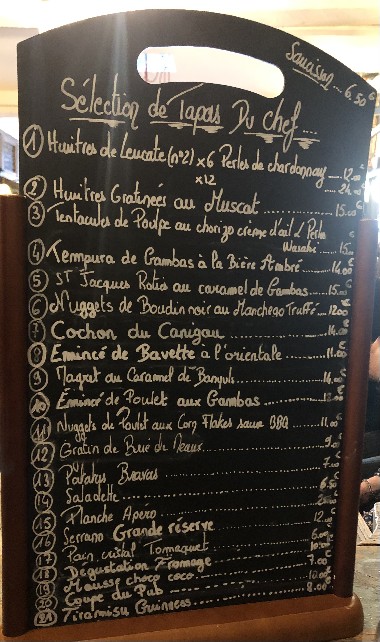 Saucisson 6.50€
Sélection de Tapas Du chef....
1 Huitres de Leucate (n°2) x6 Perles de chardonnay ..... 12.00€
x12 24.00
2 Huitres Gratinées au Muscat ........ 15.00€
3 Tentacules de Poulpe au chorizo crème d'ail & Perles
Wasabi ..... 15.00
4 Tempura de Gambas à la Bière Ambré ....... 14.00€
5 ST Jacques Rotis au caramel de Gambas ..... 15.00€
6 Nuggets de Boudin noir au Manchego Truffé ... 12.00€
7 Cochon du Canigau ........ 14.00€
8 Emincé de Bavette à l'orientale ........ 11.00€
9 Magret au Caramel de Banyuls ........ 14.00€
10 Emincé de Poulet aux Gambas ........ 12.00€
11 Nuggets de Poulet aux Corn Flakes sauce BBQ ....... 11.00€
12 Gratin de Brie de Meaux ........ 9.00€
13 Patatas Bravas ........ 7.00€
14 Saladette ........ 6.50€
15 Planche Apéro ........
16 Serrano Grande réserve ........ 12.00€
17 Pain cristal Tomaquet ........ 6.00€
18 Dégustation Fromage ........ 10.00€
19 Mousse choco coco ........ 7.00€
20 Coupe du Pub ........ 10.00€
21 Tiramisu Guinness ........ 8.00€